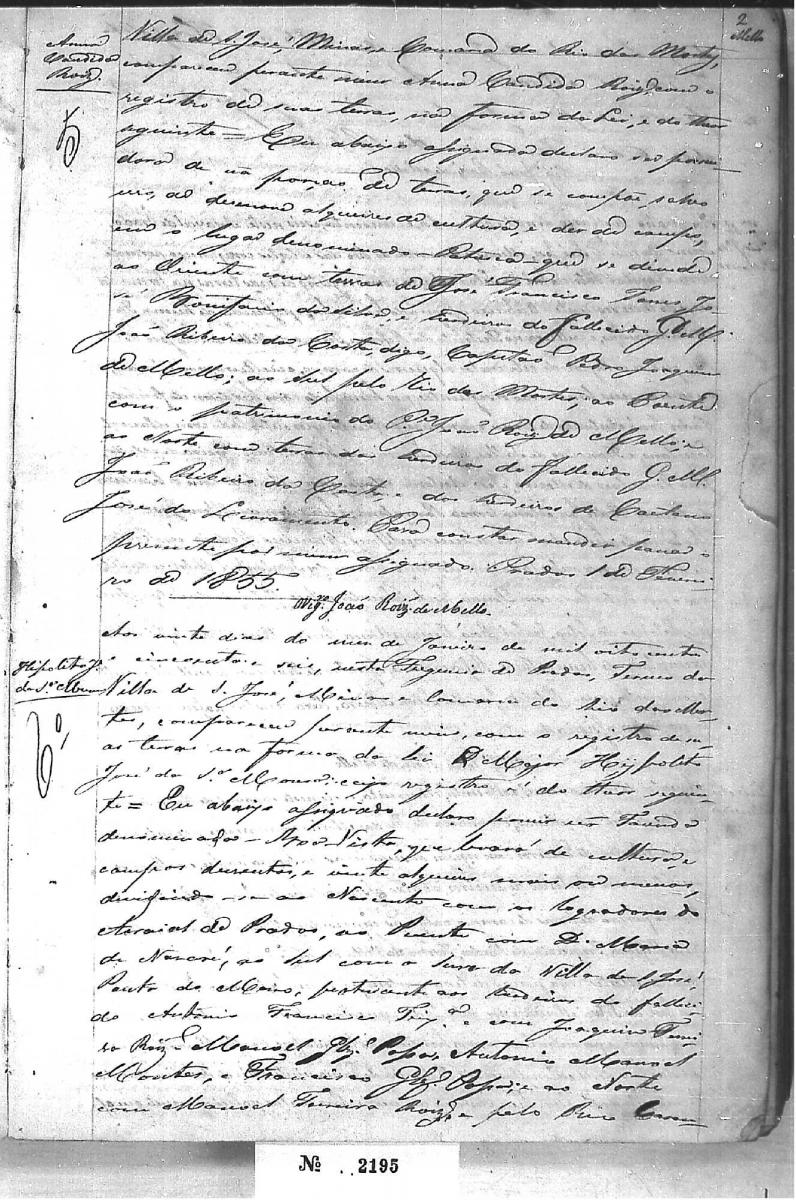 2
Mello
Anna
Candida
Roiz.
5
Villa de S. José, Minas, e Comarca do Rio das Mortes,
compareceu perante mim Anna Candida Roiz, com o
registro de suas terras, na forma da Lei, e do theor
seguinte = Eu abaixo assignada declaro ser possui-
dora de uã porção de terras, que se compõe, salvo
erro, de desenove alqueires de cultura, e des de campo,
em o lugar denominado - que se divide
ao Oriente com terras de José Francisco Jo-
sé Bomfacio da Silva, e herdeiros do fallecido G. M.
João Ribeiro da Costa, digo, Capitão Pedro Joaquim
de Mello; ao Sul pelo Rio das Mortes; ao Poente
com o patrimonio do P.e João Roiz de Mello; e
ao Norte com terras dos herdeiros do fallecido G. M.
João Ribeiro da Costa, e dos herdeiros de Caetano
José do Livramento. Para constar mandei passar o
presente por mim assignado. Prados 1 de Feverei-
ro de 1855.
Vig.ro João Roiz de Mello.
Hipolito Je.
da S.a
6º
Aos vinte dias do mes de Janeiro de mil oito centos
e cincoenta e seis, nesta Freguezia de Prados, Termo da
Villa de S. José, Minas e Comarca do Rio das Mor-
tes, compareceu perante mim, com o registro de su-
as terras na forma da Lei O Major Hyppolito
José da S.a cujo registro é do theor seguin-
te = Eu abaixo assignado declaro possuir uã Fazenda
denominada - Boa Vista, que levará de cultura, e
campos dusentos, e vinte alqueires mais ou menos,
dividindo-se ao Nascente com os logradores do
Arraial de Prados, ao Poente com D. Maria
de Nazaré, ao Sul com a Serra da Villa de S. José,
Ponta do Morro, pertencente aos herdeiros do falleci-
do Antonio Francisco e com Joaquim Ferrei-
ra Roiz, Manoel Glz. Antonio Manoel
Montes, e Francisco Glz. e ao Norte
com Manoel Ferreira Roiz, e pelo Rio
Nº 2195